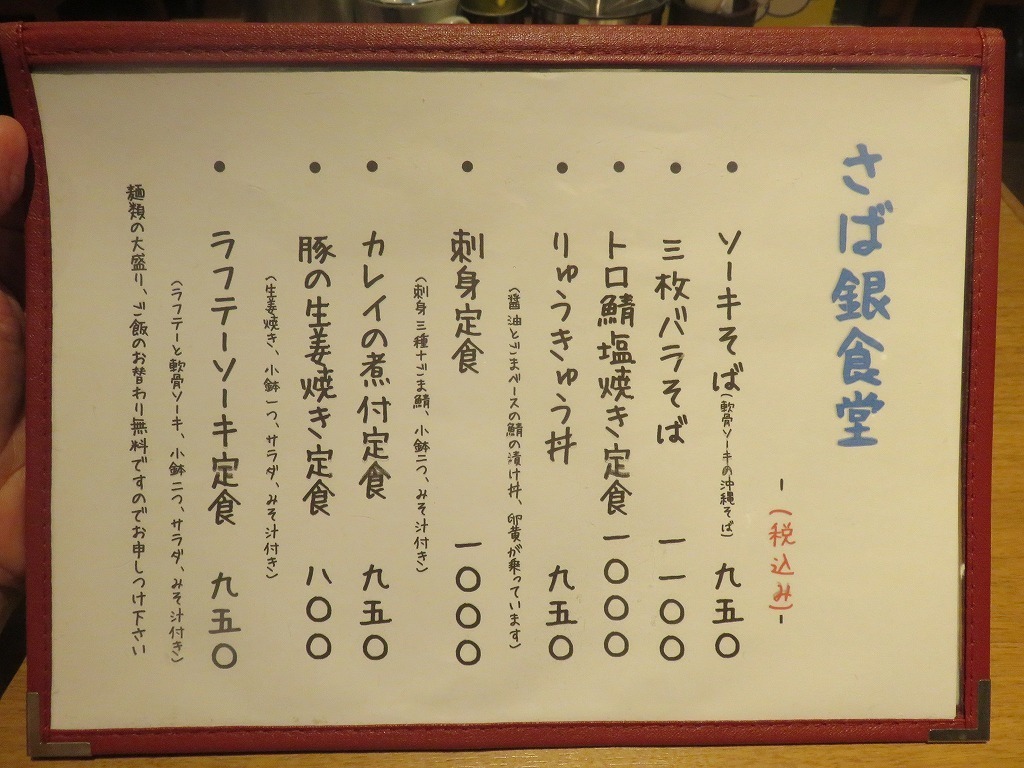 さば銀食堂
-(税込み)-
・ソーキそば(軟骨ソーキの沖縄そば) 九五〇
・三枚バラそば 一一〇〇
・トロ鯖塩焼き定食 一〇〇〇
・りゅうきゅう丼 九五〇
(醤油とごまベースの鯖の漬け丼、卵黄が乗っています)
・刺身定食 一〇〇〇
(刺身三種+ごま鯖、小鉢二つ、みそ汁付き)
・カレイの煮付定食 九五〇
・豚の生姜焼き定食 八〇〇
(生姜焼き、小鉢一つ、サラダ、みそ汁付き)
・ラフテーソーキ定食 九五〇
(ラフテーと軟骨ソーキ、小鉢二つ、サラダ、みそ汁付き)
麺類の大盛り、ご飯のお替わり無料ですのでお申しつけ下さい